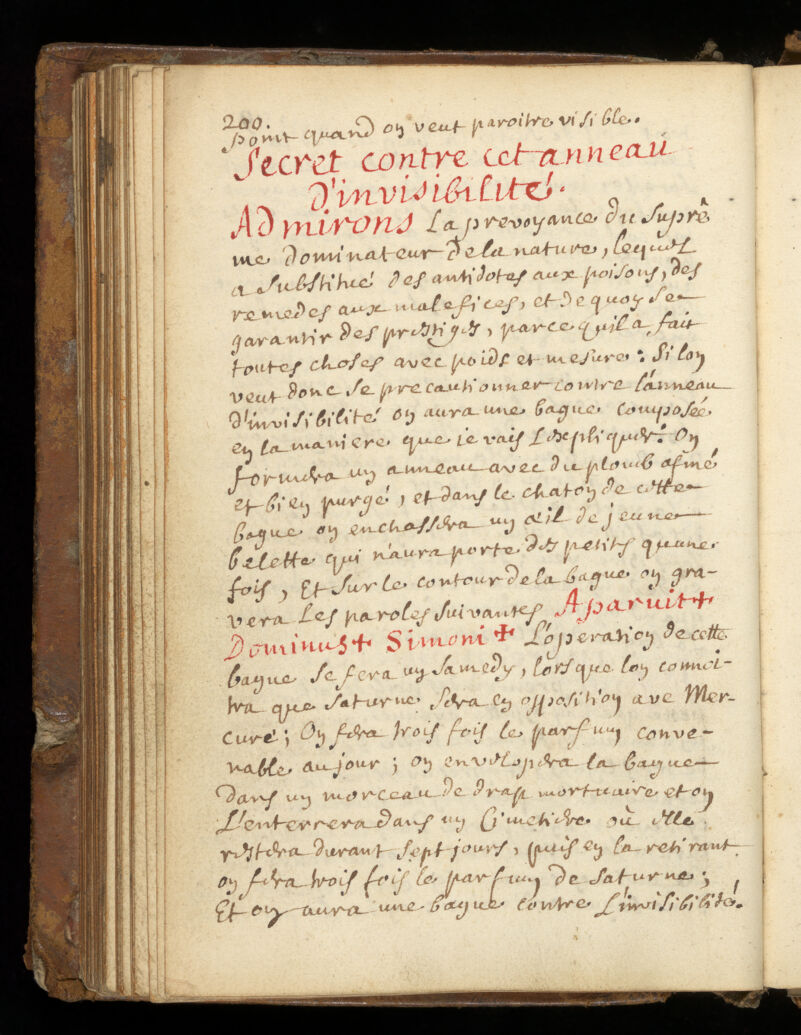 200.
point quand on veut paroitre visible.
Secret contre cet anneau
D'invisibilité.
Admirons La prevoyance du suprê
me dominateur de la nature, lequel
a substitué des antidotes aux poisons, des
remedes aux malefices, et de quoy se
garantir des prestiges, parce qu'il a fait
toutes choses avec poids et mesure : Si lon
veut donc se precautionner contre lánneau
d'invisibilité on aura une bague composée
en la maniere que ie vais L'expliquer: On
formera un anneau avec du plomb afiné
et bien purgé, et dans le chaton de cette
bague on enchassera un œil de jeune
belette qui n'aura porte des petits quune
fois, Et sur le contour de la bague on gra-
vera Les paroles suivantes Aparuit +
Dominus + Simoni + L'operation de cette
bague se fera un samedy, lorsque lon connoi-
tra que saturne sera en opposition ave Mer-
cure; On fera trois fois le parfum conve-
nable au jour ; on envelopera la bague
dans un morceau de drap mortuaire et on
L'enterrera dans un Cimetiere où elle
restera durant sept jours, puis en la retirant
on fera trois fois le parfum de saturne ;
Et on aura une bague contre L'invisibilité.